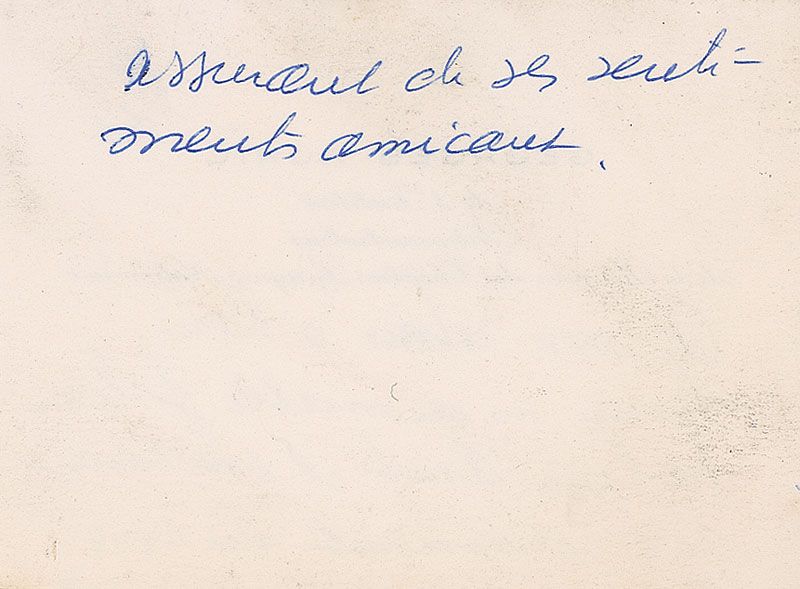 assurant de ses senti-
ments amicaux.